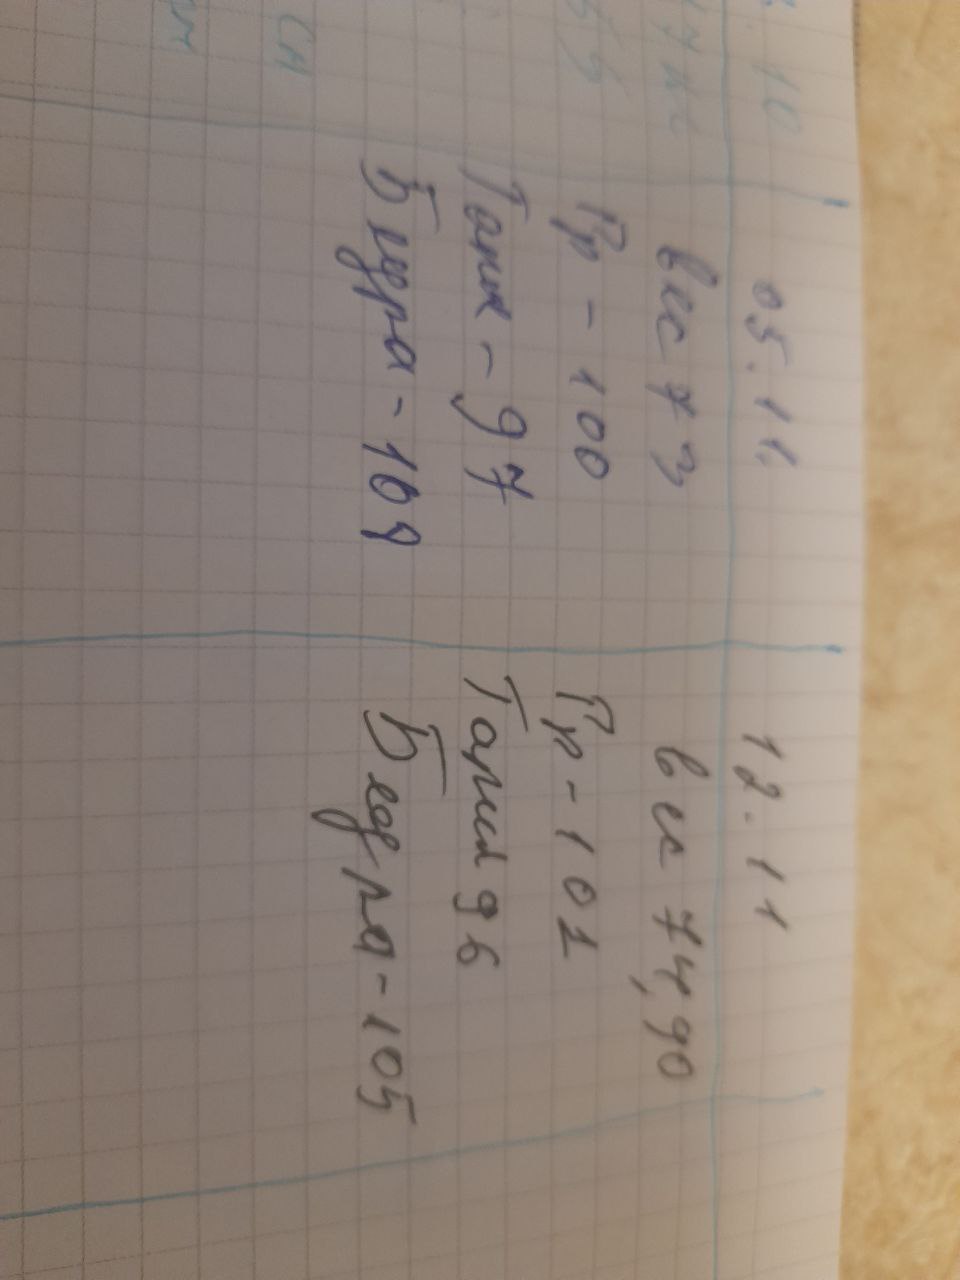 05.11.
вес 73
Гр - 100
Талия - 97
Бедра - 109
12.11
вес 74,90
Гр - 101
Талия 96
Бедра - 105